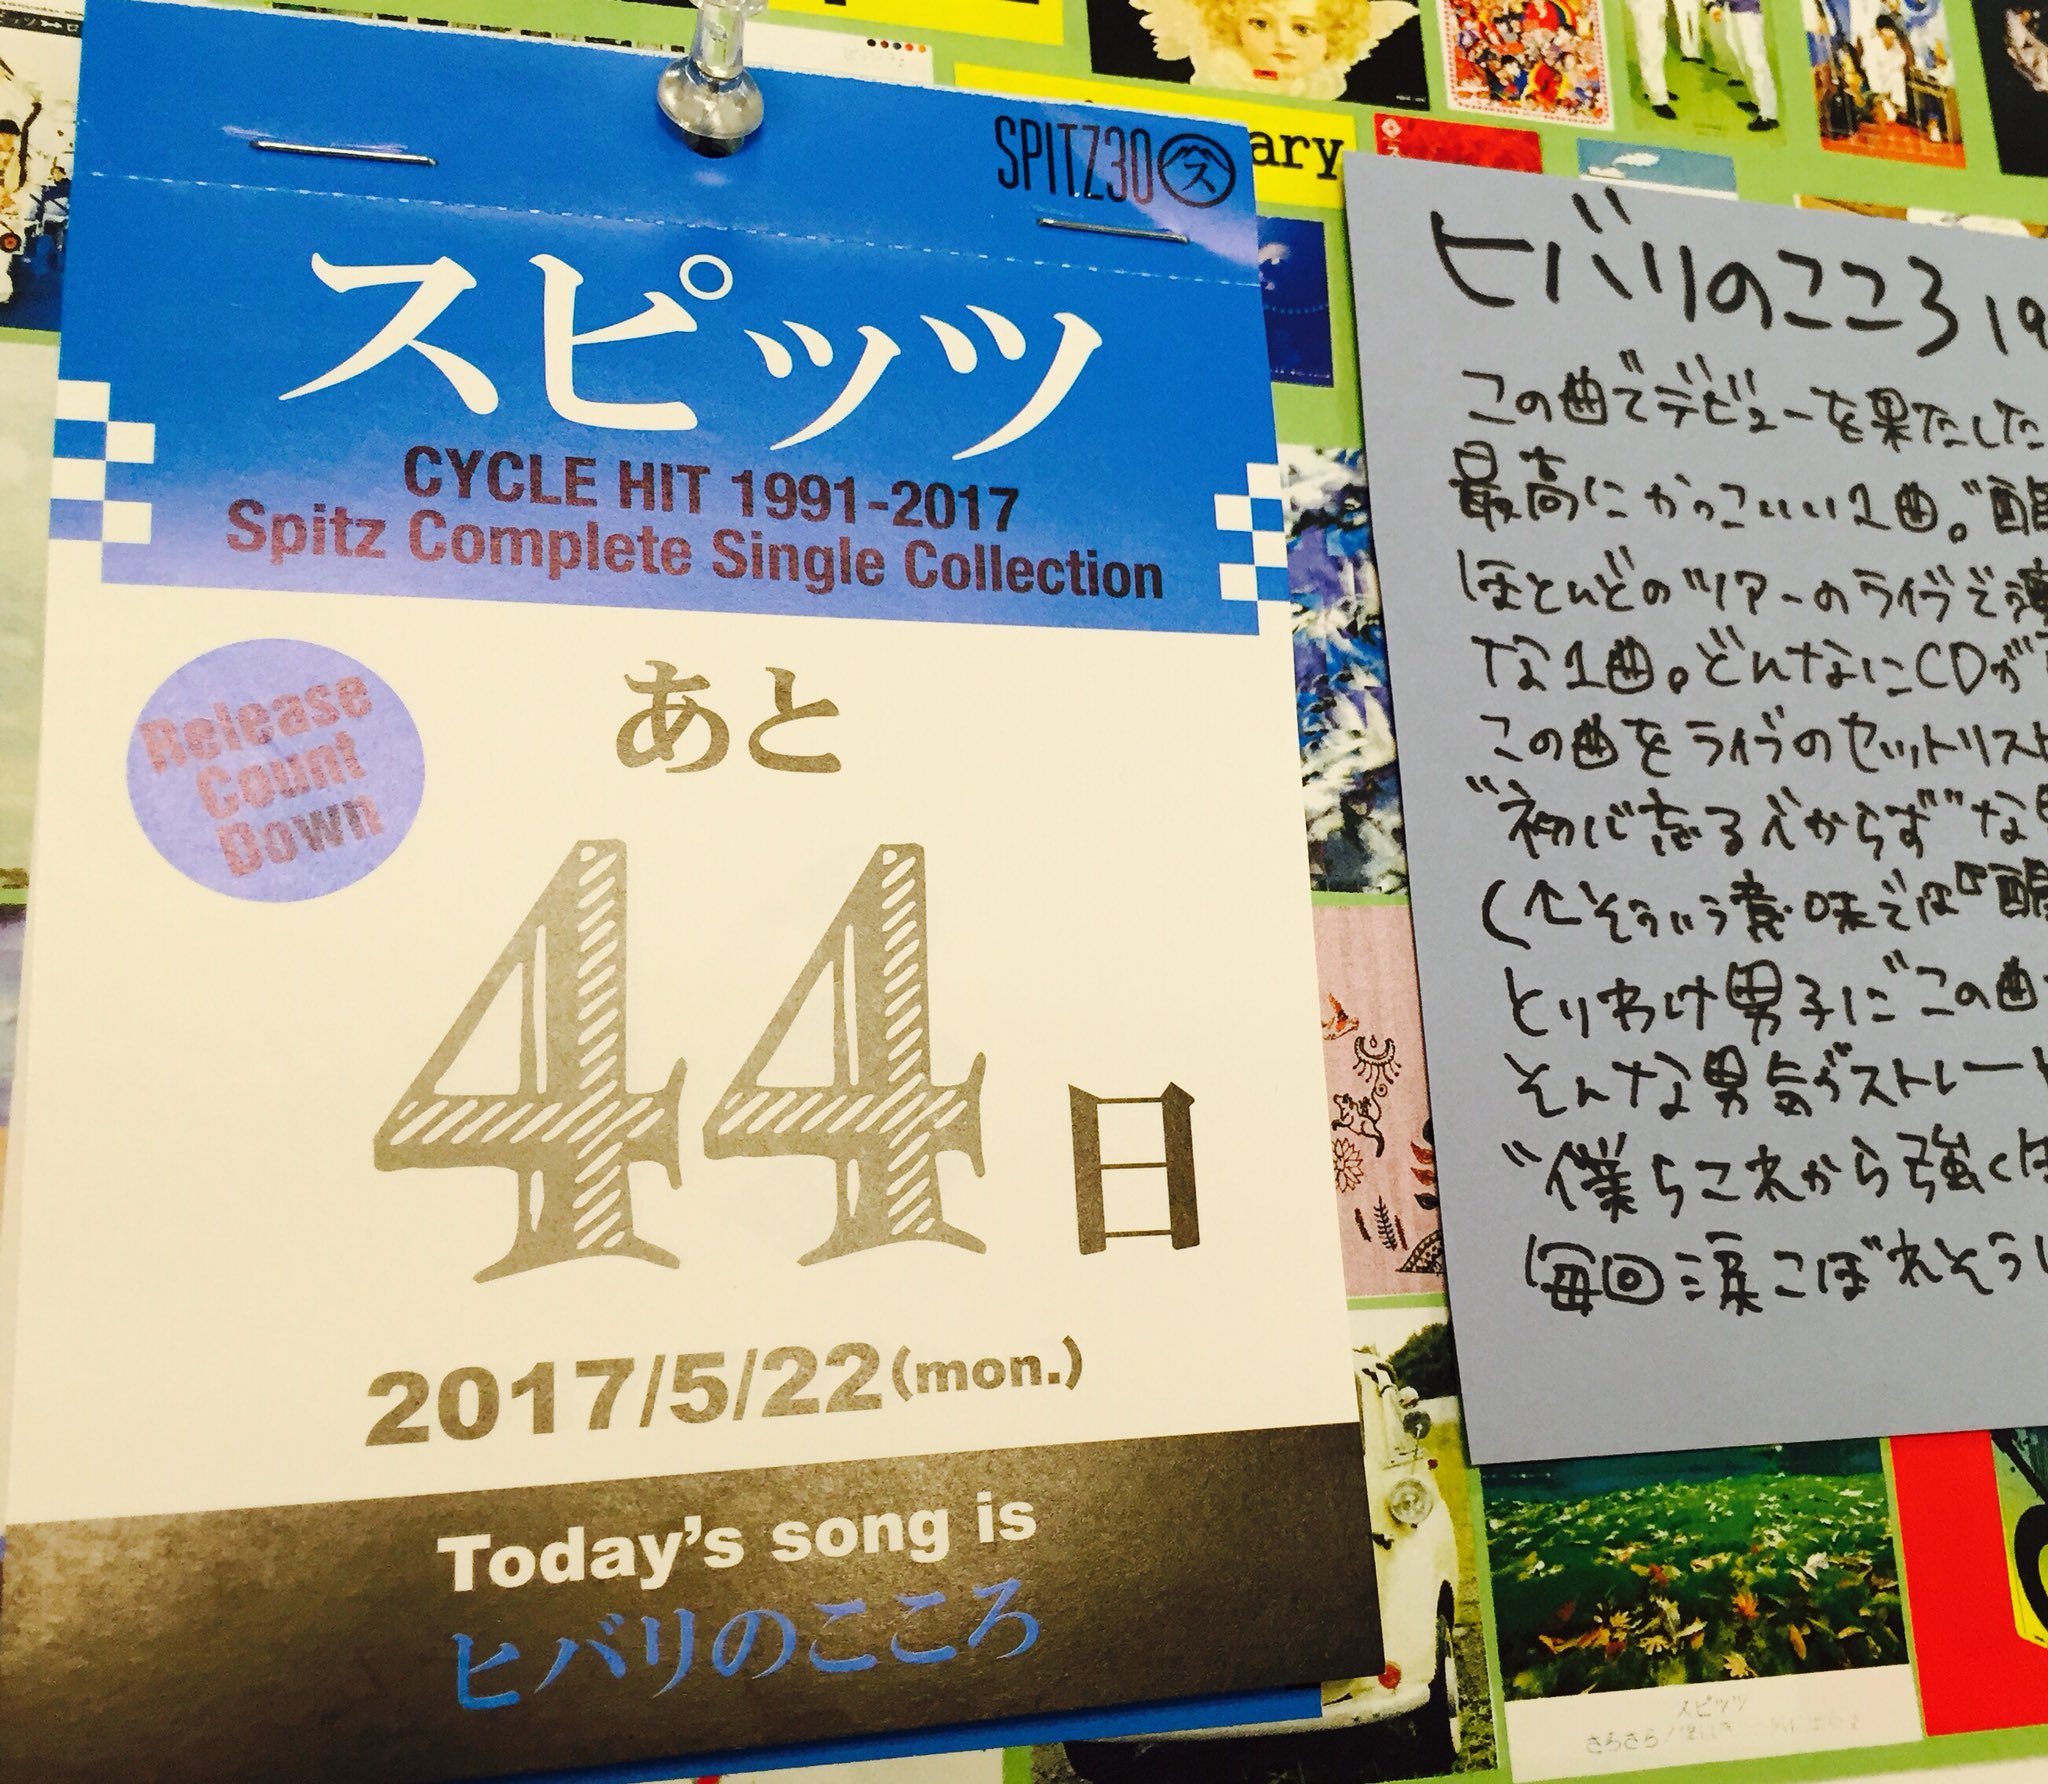 SPITZ30
スピッツ
CYCLE HIT 1991-2017
Spitz Complete Single Collection
Release
Count
Down
あと
44日
2017/5/22(mon.)
Today's song is
ヒバリのこころ
ary
ヒバリのこころ 19
この曲でデビューを果たした
最高にかっこいい1曲。"醒
ほとんどのツアーのライブで演
な1曲。どんなにCDが
この曲をライブのセットリスト
"初心忘るべからず"な
(↑そういう意味では『醒
とりわけ男子に"この曲
そんな男気がストレート
"僕らこれから強く
毎回涙こぼれそうに
スピッツ
さらさら/